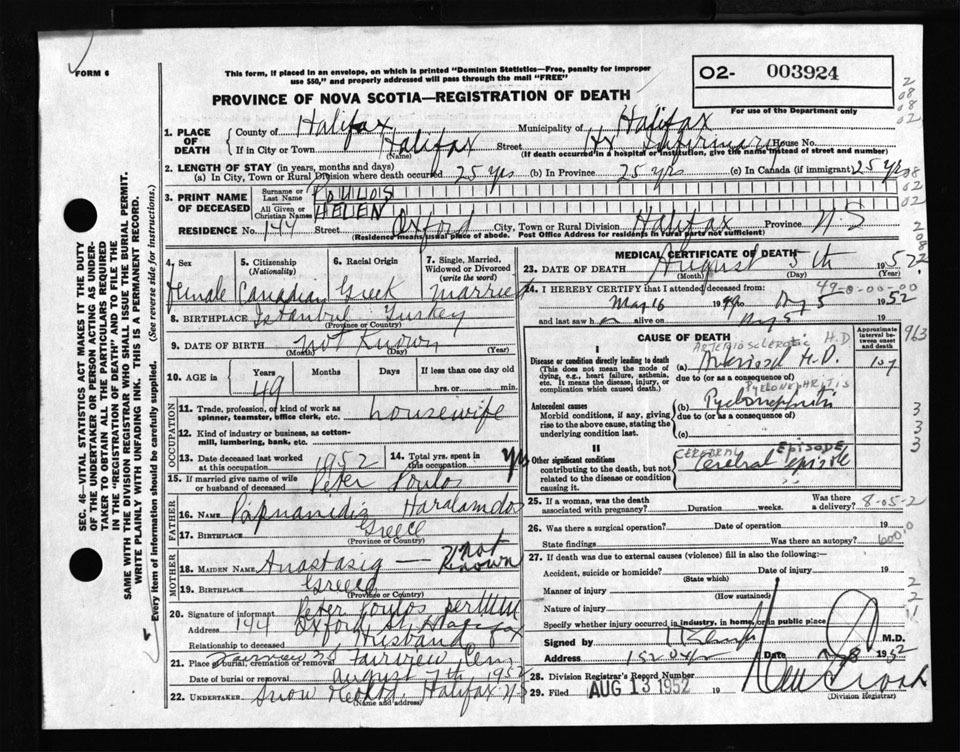 FORM 6
This form, if placed in an envelope, on which is printed "Dominion Statistics—Free, penalty for improper
use $50," and properly addressed will pass through the mail "FREE"
02- 003924
For use of the Department only
PROVINCE OF NOVA SCOTIA—REGISTRATION OF DEATH
1. PLACE OF DEATH
County of Halifax Municipality of Halifax
If in City or Town Halifax (Name) Street Hx Infirmary House No.
(If death occurred in a hospital or institution, give the name instead of street and number)
2. LENGTH OF STAY (in years, months and days)
(a) In City, Town or Rural Division where death occurred 25 yrs (b) In Province 25 yrs (c) In Canada (if immigrant) 25 yrs
3. PRINT NAME OF DECEASED
Surname or Last Name POULOIS
All Given or Christian Names HELEN
RESIDENCE No. 144 Street Oxford City, Town or Rural Division Halifax Province N.S
(Residence means usual place of abode. Post Office Address for residents in rural parts not sufficient)
4. Sex Female
5. Citizenship (Nationality) Canadian
6. Racial Origin Greek
7. Single, Married, Widowed or Divorced (write the word) Married
8. BIRTHPLACE Istanbul Turkey
(Province or Country)
9. DATE OF BIRTH not known
(Month) (Day) (Year)
10. AGE in Years Months Days If less than one day old
49 hrs. or min.
11. Trade, profession, or kind of work as spinner, teamster, office clerk, etc. housewife
OCCUPATION
12. Kind of industry or business, as cotton-mill, lumbering, bank, etc.
13. Date deceased last worked at this occupation 1952
14. Total yrs. spent in this occupation yrs
15. If married give name of wife or husband of deceased Peter Poulos
FATHER
16. NAME Haralamdos
17. BIRTHPLACE Greece
(Province or Country)
MOTHER
18. MAIDEN NAME Anastasia — not Known
19. BIRTHPLACE Greece
(Province or Country)
20. Signature of informant Peter Poulos per
Address 144 Oxford St. Halifax
Relationship to deceased Husband
21. Place of burial, cremation or removal Fairview Cem
Date of burial or removal august 7th 1952
22. UNDERTAKER Snow & Co Ltd, Halifax N.S
(Name and address)
MEDICAL CERTIFICATE OF DEATH
23. DATE OF DEATH August 5th 1952
(Month) (Day) (Year)
24. I HEREBY CERTIFY that I attended deceased from 49-0-00-00
May 16 1949 to Aug 5 1952
and last saw h er alive on Aug 5
CAUSE OF DEATH
Approximate interval between onset and death
I
ARTERIOSCLEROTIC H.D
Disease or condition directly leading to death
(This does not mean the mode of dying, e.g., heart failure, asthenia, etc. It means the disease, injury, or complication which caused death.)
(a) H.D. 10 y
due to (or as a consequence of)
PYELONEPHRITIS
Antecedent causes
Morbid conditions, if any, giving rise to the above cause, stating the underlying condition last.
(b) Pyelonephritis
due to (or as a consequence of)
(c)
II
CEREBRAL EPISODE
Other significant conditions
contributing to the death, but not related to the disease or condition causing it.
Cerebral episode
25. If a woman, was the death associated with pregnancy? Duration weeks. Was there a delivery? 8-05-2
26. Was there a surgical operation? Date of operation 19
State findings Was there an autopsy?
27. If death was due to external causes (violence) fill in also the following:—
Accident, suicide or homicide? Date of injury 19
(State which)
Manner of injury
(How sustained)
Nature of injury
Specify whether injury occurred in industry, in home, or in public place
Signed by M.D.
Address Date 1952
28. Division Registrar's Record Number
29. Filed AUG 13 1952 19
(Division Registrar)
SEC. 46—VITAL STATISTICS ACT MAKES IT THE DUTY
OF THE UNDERTAKER OR PERSON ACTING AS UNDER-
TAKER TO OBTAIN ALL THE PARTICULARS REQUIRED
IN THE "REGISTRATION OF DEATH" AND TO FILE THE
SAME WITH THE DIVISION REGISTRAR WHO SHALL ISSUE THE BURIAL PERMIT.
WRITE PLAINLY WITH UNFADING INK. THIS IS A PERMANENT RECORD.
Every item of information should be carefully supplied. (See reverse side for instructions.)